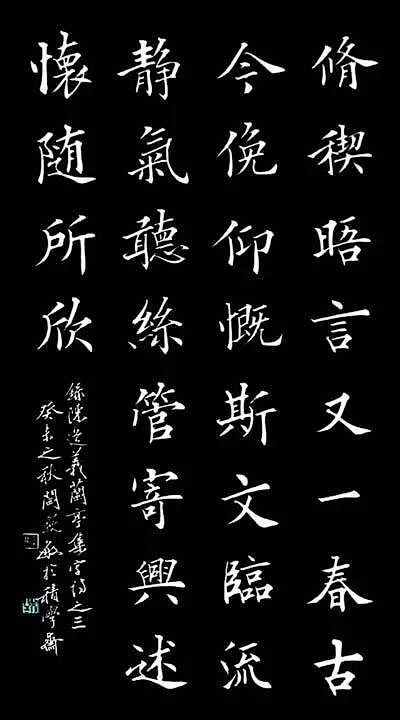 脩稧晤言又一春古
今俛仰慨斯文臨流
静氣聽絲管寄興述
懷随所欣
錄義蘭亭集字詩之三
癸未之秋於積學齋